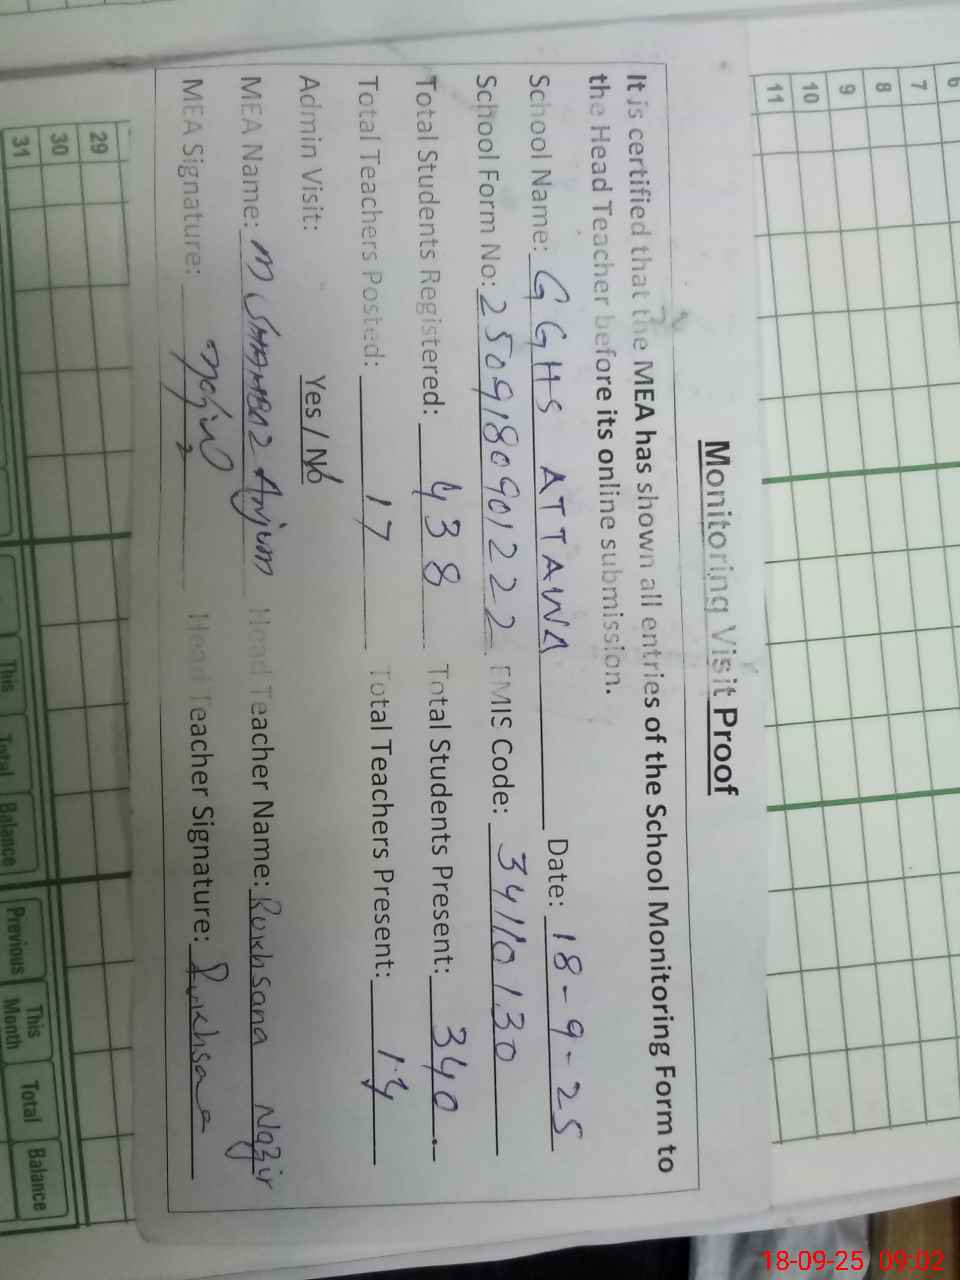 Monitoring Visit Proof
It is certified that the MEA has shown all entries of the School Monitoring Form to
the Head Teacher before its online submission.
School Name: GGHS ATTAWA Date: 18-9-25
School Form No: 2509180901222 EMIS Code: 34110130
Total Students Registered: 438 Total Students Present: 340
Total Teachers Posted: 17 Total Teachers Present: 14
Admin Visit: Yes / No
MEA Name: M Anjum Head Teacher Name: Rukhsana Nazir
MEA Signature: Head Teacher Signature: Rukhsana
6
7
8
9
10
11
29
30
31
This Total Balance Previous This Month Total Balance
18-09-25 09:02